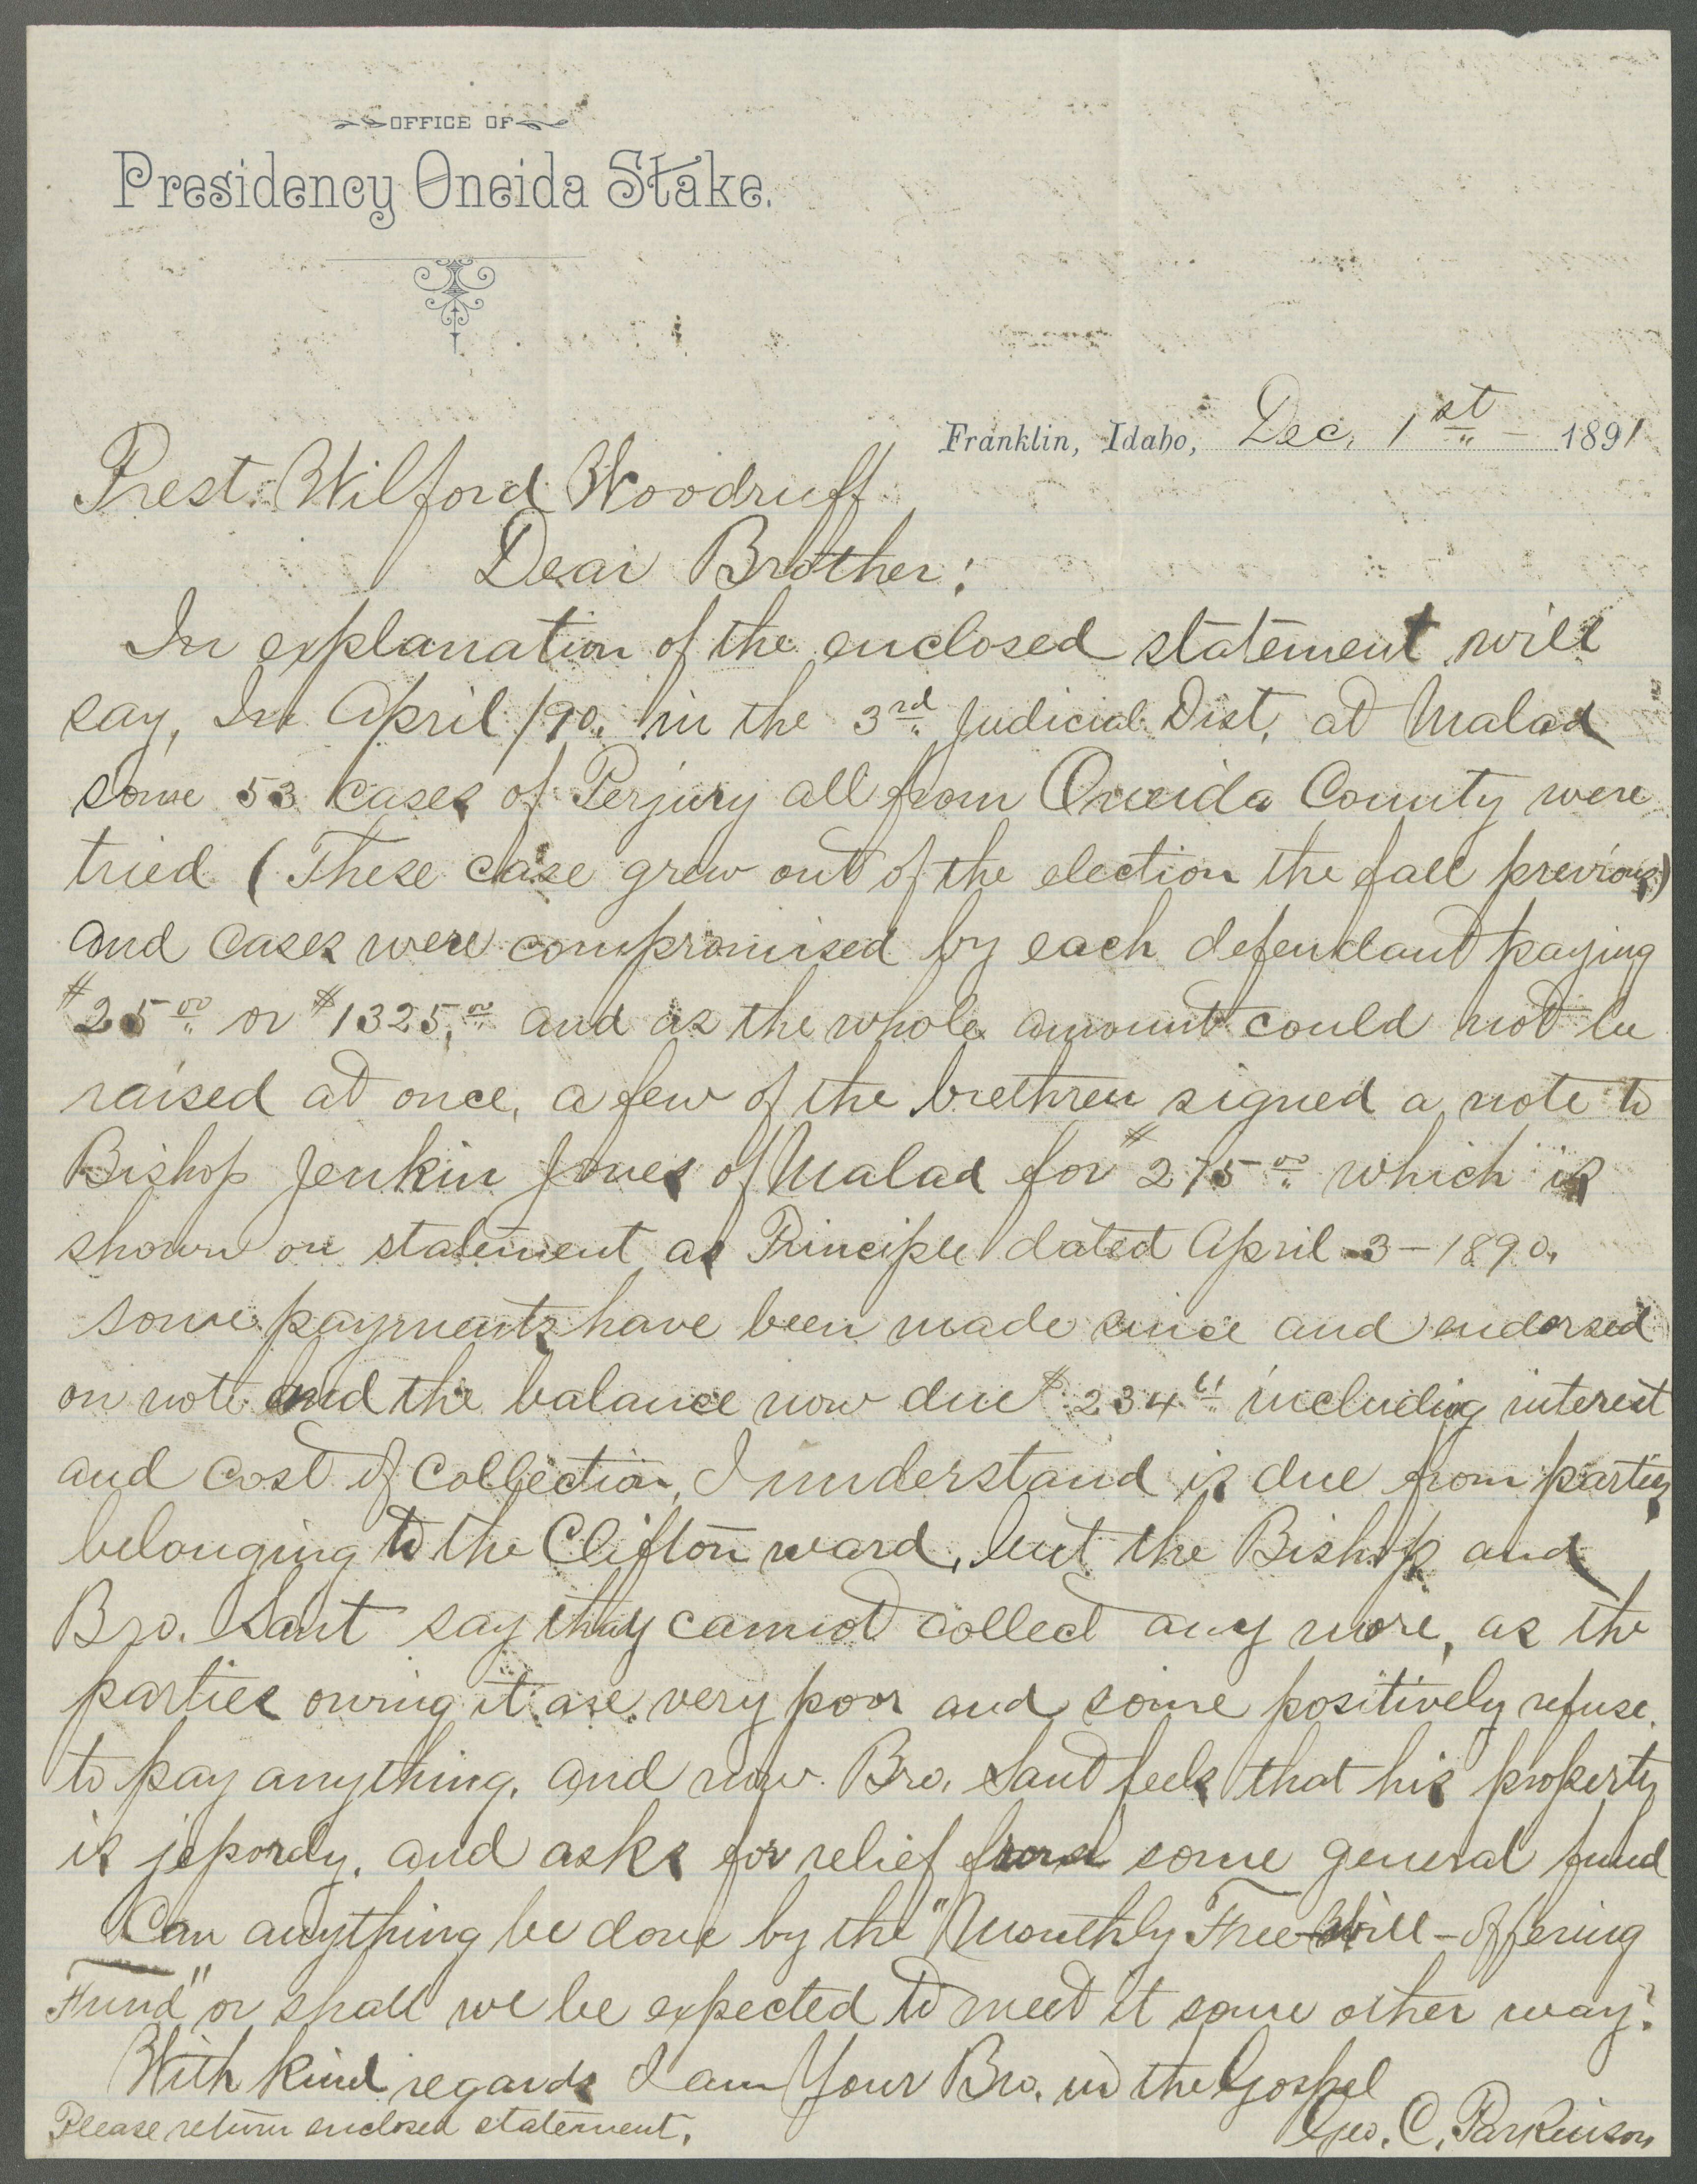 OFFICE OF
Presidency Oneida Stake.
Franklin, Idaho, Dec. 1st 1891
Prest. Wilford Woodruff
Dear Brother:
In explanation of the enclosed statement will
say, In April /90. in the 3rd Judicial Dist. at Malad
some 53 cases of Perjury all from Oneida County were
tried (These case grew out of the election the fall previous)
and cases were compromised by each defendant paying
$25.00 or $1325.00 and as the whole amount could not be
raised at once, a few of the brethren signed a note to
Bishop Jenkin Jones of Malad for $275.00 which is
shown on statement as Principle dated April 3 - 1890.
some payments have been made since and endorsed
on note and the balance now due $234.61 including interest
and cost of collection, I understand is due from parties
belonging to the Clifton ward, but the Bishop and
Bro. Sant say they cannot collect any more, as the
parties owing it are very poor and some positively refuse
to pay anything. and now Bro. Sant feels that his property
is jepordy, and asks for relief from some general fund
Can anything be done by the "Monthly Free-will-offering
Fund" or shall we be expected to meet it some other way?
With kind regards I am Your Bro. in the Gospel
Geo. C. Parkinson
Please return enclosed statement.